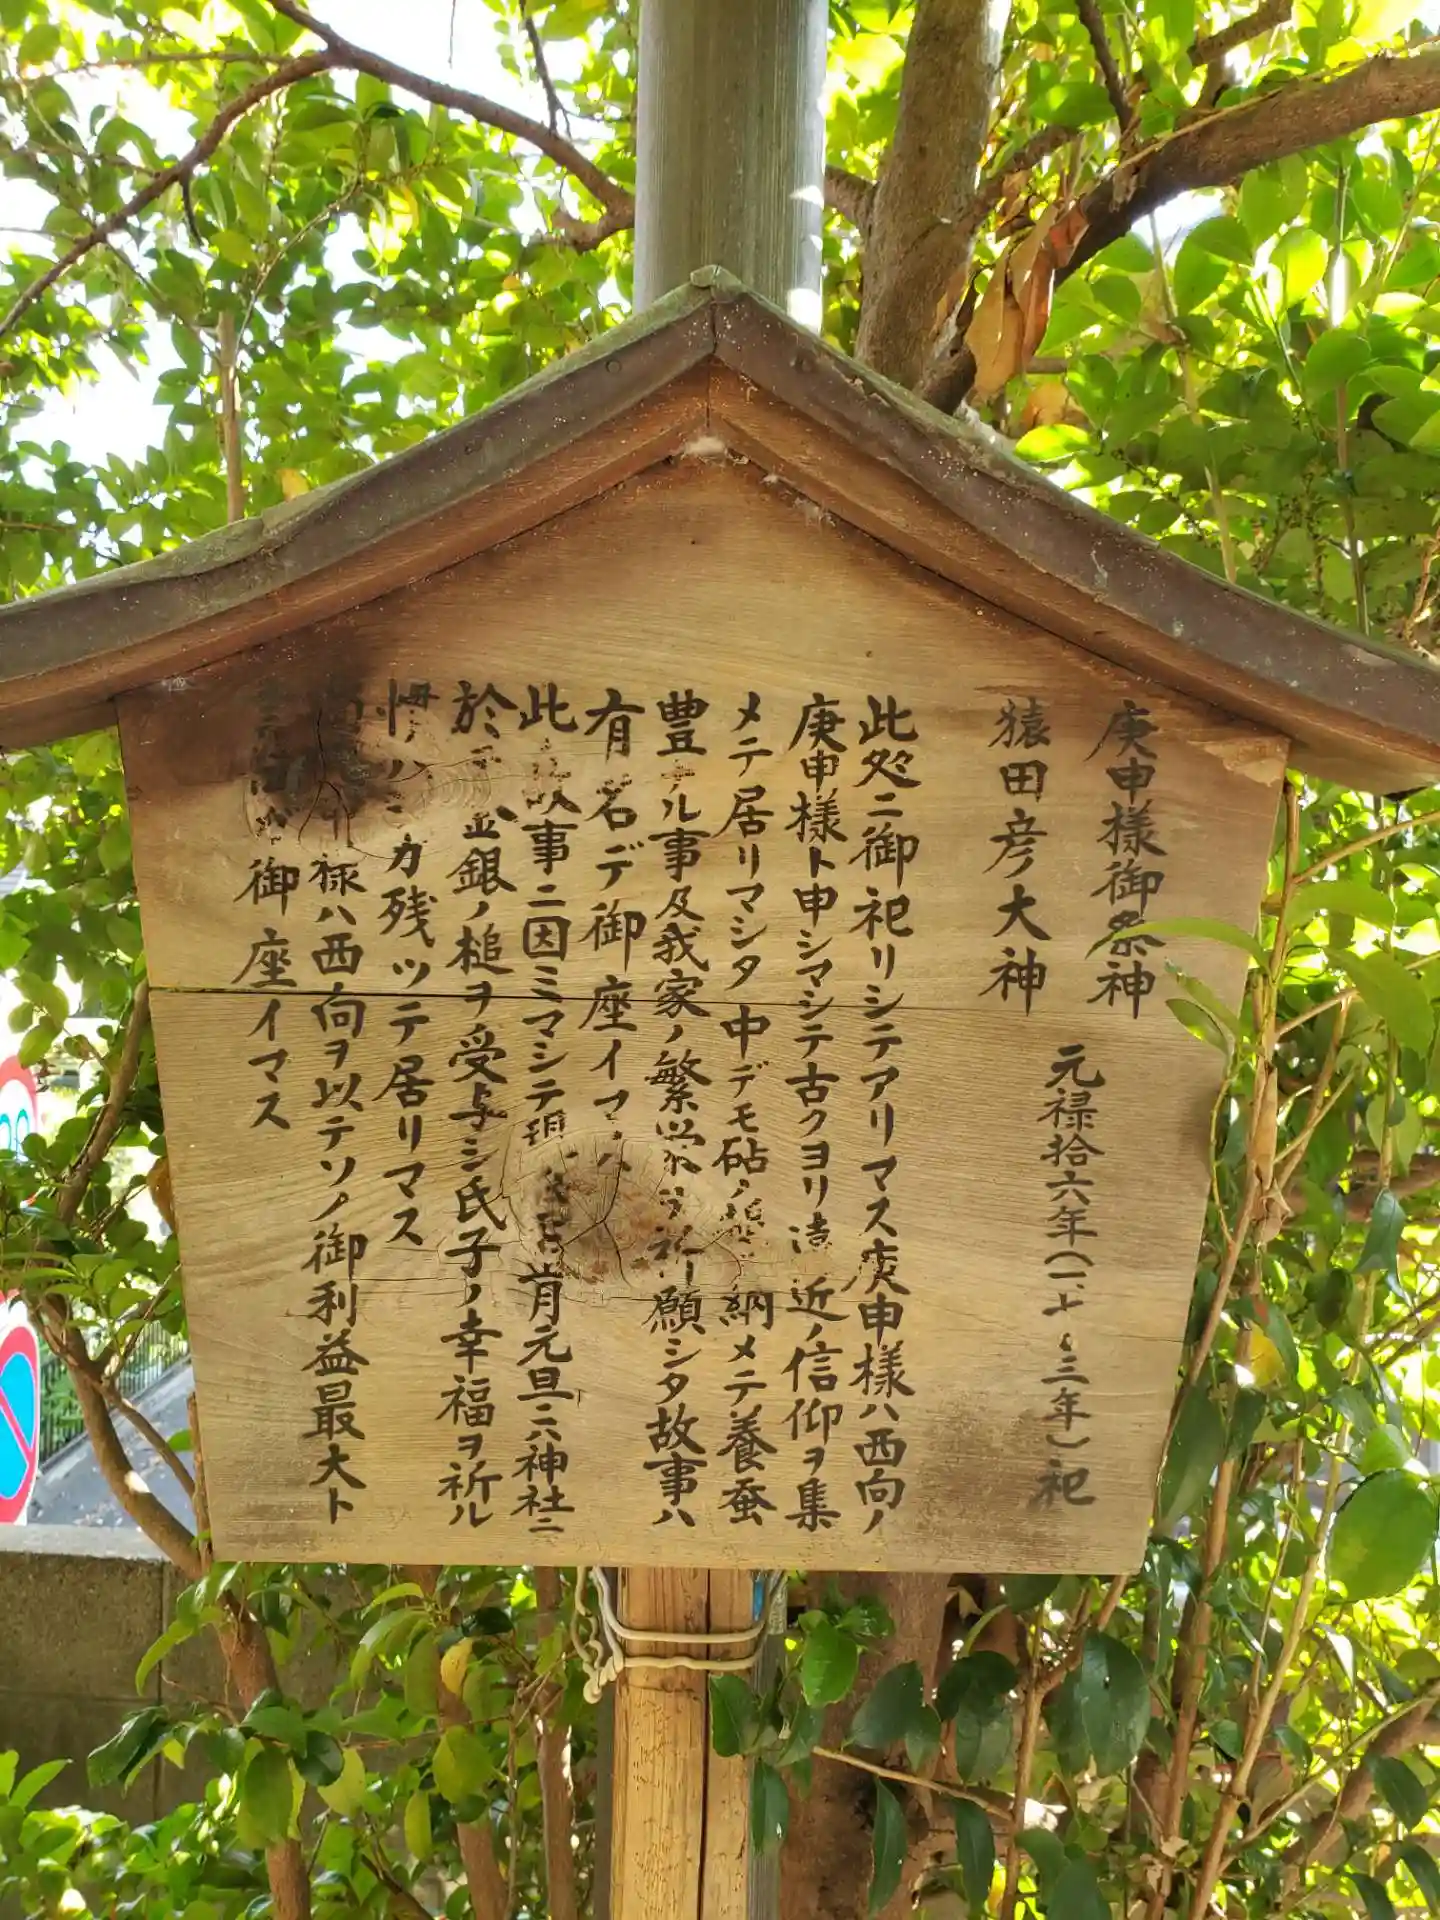 庚申様御祭神
元禄拾六年（一七〇三年）祀
猿田彦大神
此処ニ御祀リシテアリマス庚申様ハ西向ノ
庚申様ト申シマシテ古クヨリ遠近ノ信仰ヲ集
メテ居リマシタ中デモ砧ノ 納メテ養蚕
豊ナル事及我家ノ繁栄ヲ祈願シタ故事ハ
有名デ御座イマス
此ノ故事ニ因ミマシテ現 元旦ニ六神社ニ
於テ金銀ノ槌ヲ受与シ氏子ノ幸福ヲ祈ル
慣ハシガ残ツテ居リマス
様ハ西向ヲ以テソノ御利益最大ト
御座イマス